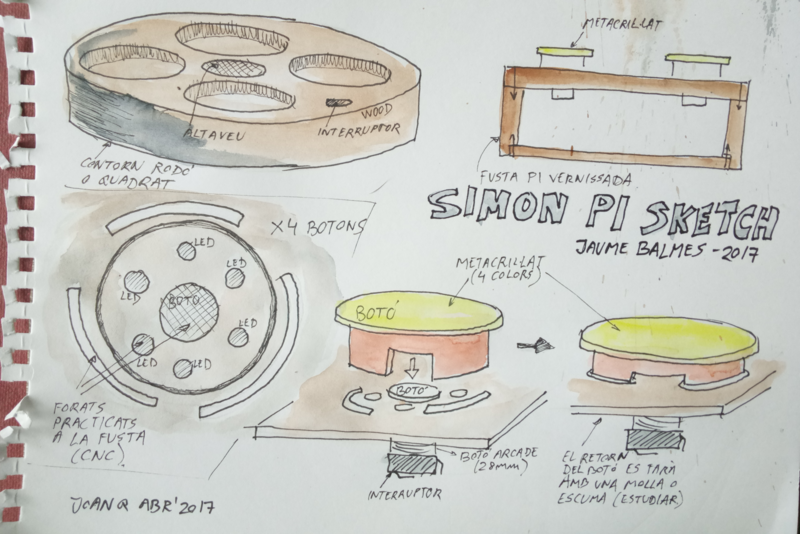 METACRIL·LAT
WOOD
ALTAVEU
INTERRUPTOR
CONTORN RODÓ
O QUADRAT
FUSTA PI VERNISSADA
SIMON PI SKETCH
JAUME BALMES - 2017
X4 BOTONS
LED
LED
LED
BOTÓ
LED
LED
LED
FORATS
PRACTICATS
A LA FUSTA
(CNC).
METACRIL·LAT
(4 COLORS)
BOTÓ
BOTÓ
BOTÓ ARCADE
(28mm)
INTERRUPTOR
EL RETORN
DEL BOTÓ ES FARÀ
AMB UNA MOLLA O
ESCUMA (ESTUDIAR)
JOANQ ABR'2017